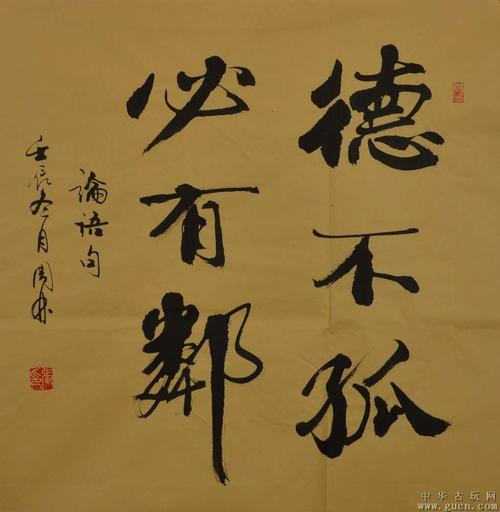 德不孤
必有鄰
論語句
壬辰冬月周
中华古玩网
www.gucn.com